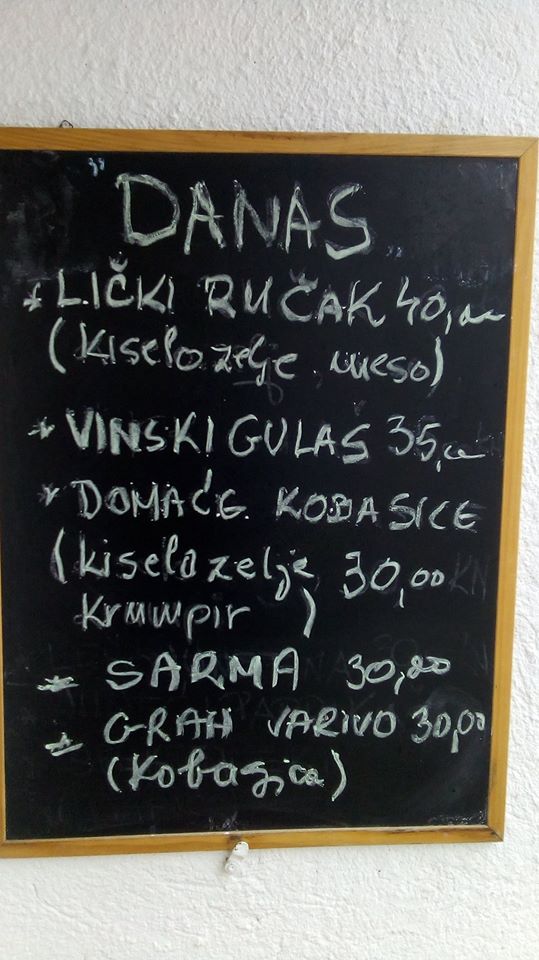 DANAS
* LIČKI RUČAK 40,00
(Kiselo zelje, meso)
* VINSKI GULAŠ 35,00
* DOMAĆE KOBASICE
(kiselo zelje, 30,00 KN
Krumpir )
* SARMA 30,00
* GRAH VARIVO 30,00
(Kobasica)